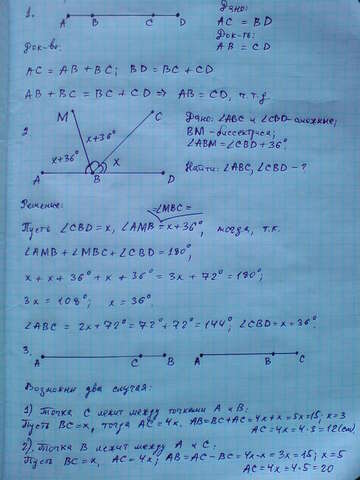 1.
A B C D
Дано:
AC = BD
Док-ть:
AB = CD
Док-во:
AC = AB + BC; BD = BC + CD
AB + BC = BC + CD ⇒ AB = CD, ч.т.д.
2.
M C
x+36° x+36° x
A B D
Дано: ∠ABC и ∠CBD - смежные;
BM - биссектриса;
∠ABM = ∠CBD + 36°.
Найти: ∠ABC, ∠CBD - ?
Решение:
=∠MBC=
Пусть ∠CBD = x, ∠AMB = x+36°, тогда, т.к.
∠AMB + ∠MBC + ∠CBD = 180°,
x + x + 36° + x + 36° = 3x + 72° = 180°;
3x = 108°; x = 36°.
∠ABC = 2x + 72° = 72° + 72° = 144°; ∠CBD = x = 36°.
3.
A C B A B C
Возможны два случая:
1) Точка C лежит между точками A и B:
Пусть BC = x, тогда AC = 4x, AB = BC + AC = 4x + x = 5x = 15; x = 3
AC = 4x = 4·3 = 12 (см)
2) Точка B лежит между A и C:
Пусть BC = x, AC = 4x; AB = AC - BC = 4x - x = 3x = 15; x = 5
AC = 4x = 4·5 = 20